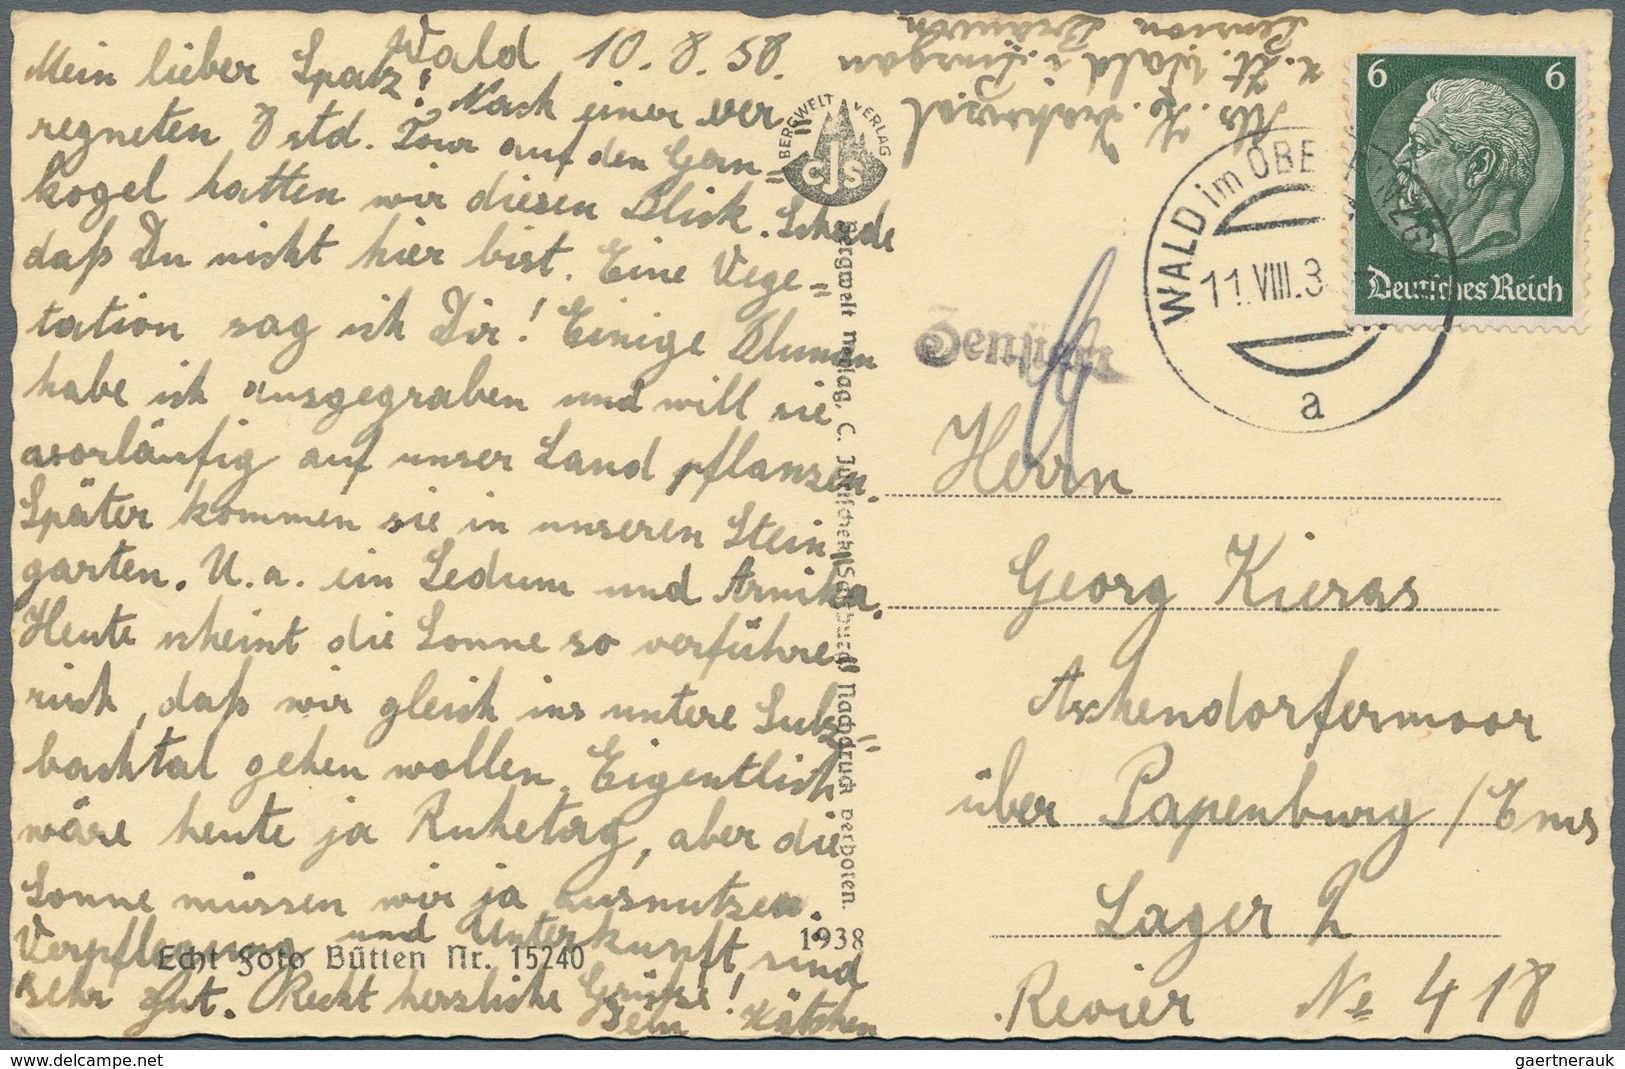 Wald 10.8.38.
Mein lieber Spatz!
Nach einer ver
regneten 8 std. Tour auf den Gern=
kogel hatten wir diesen Blick. Schade
daß Du nicht hier bist. Eine Vege=
tation sag ich Dir! Einige Blumen
habe ich ausgegraben und will sie
vorläufig auf unser Land pflanzen.
Später kommen sie in unseren Stein
garten. U. a. ein Sedum und Arnika.
Heute scheint die Sonne so verführe
risch, daß wir gleich ins untere Sulz=
bachtal gehen wollen. Eigentlich
wäre heute ja Ruhetag, aber die
Sonne müssen wir ja ausnutzen.
Verpflegung und Unterkunft sind
sehr gut. Recht herzliche Grüße!
Dein Kätchen
Echt Foto Bütten Nr. 15240
1938
BERGWELT VERLAG
CJS
Bergwelt Verlag, C. Jurischek, Salzburg Nachdruck verboten.
Abs. K.
z. Zt. Wald i. Pinzgau
Pension
6 6
Deutsches Reich
WALD im OBERPINZGAU
11.VIII.3
a
Zensiert
Herrn
Georg Kieras
Aschendorfermoor
über Papenburg / Ems
Lager 2
Revier No 418
gaertnerauk